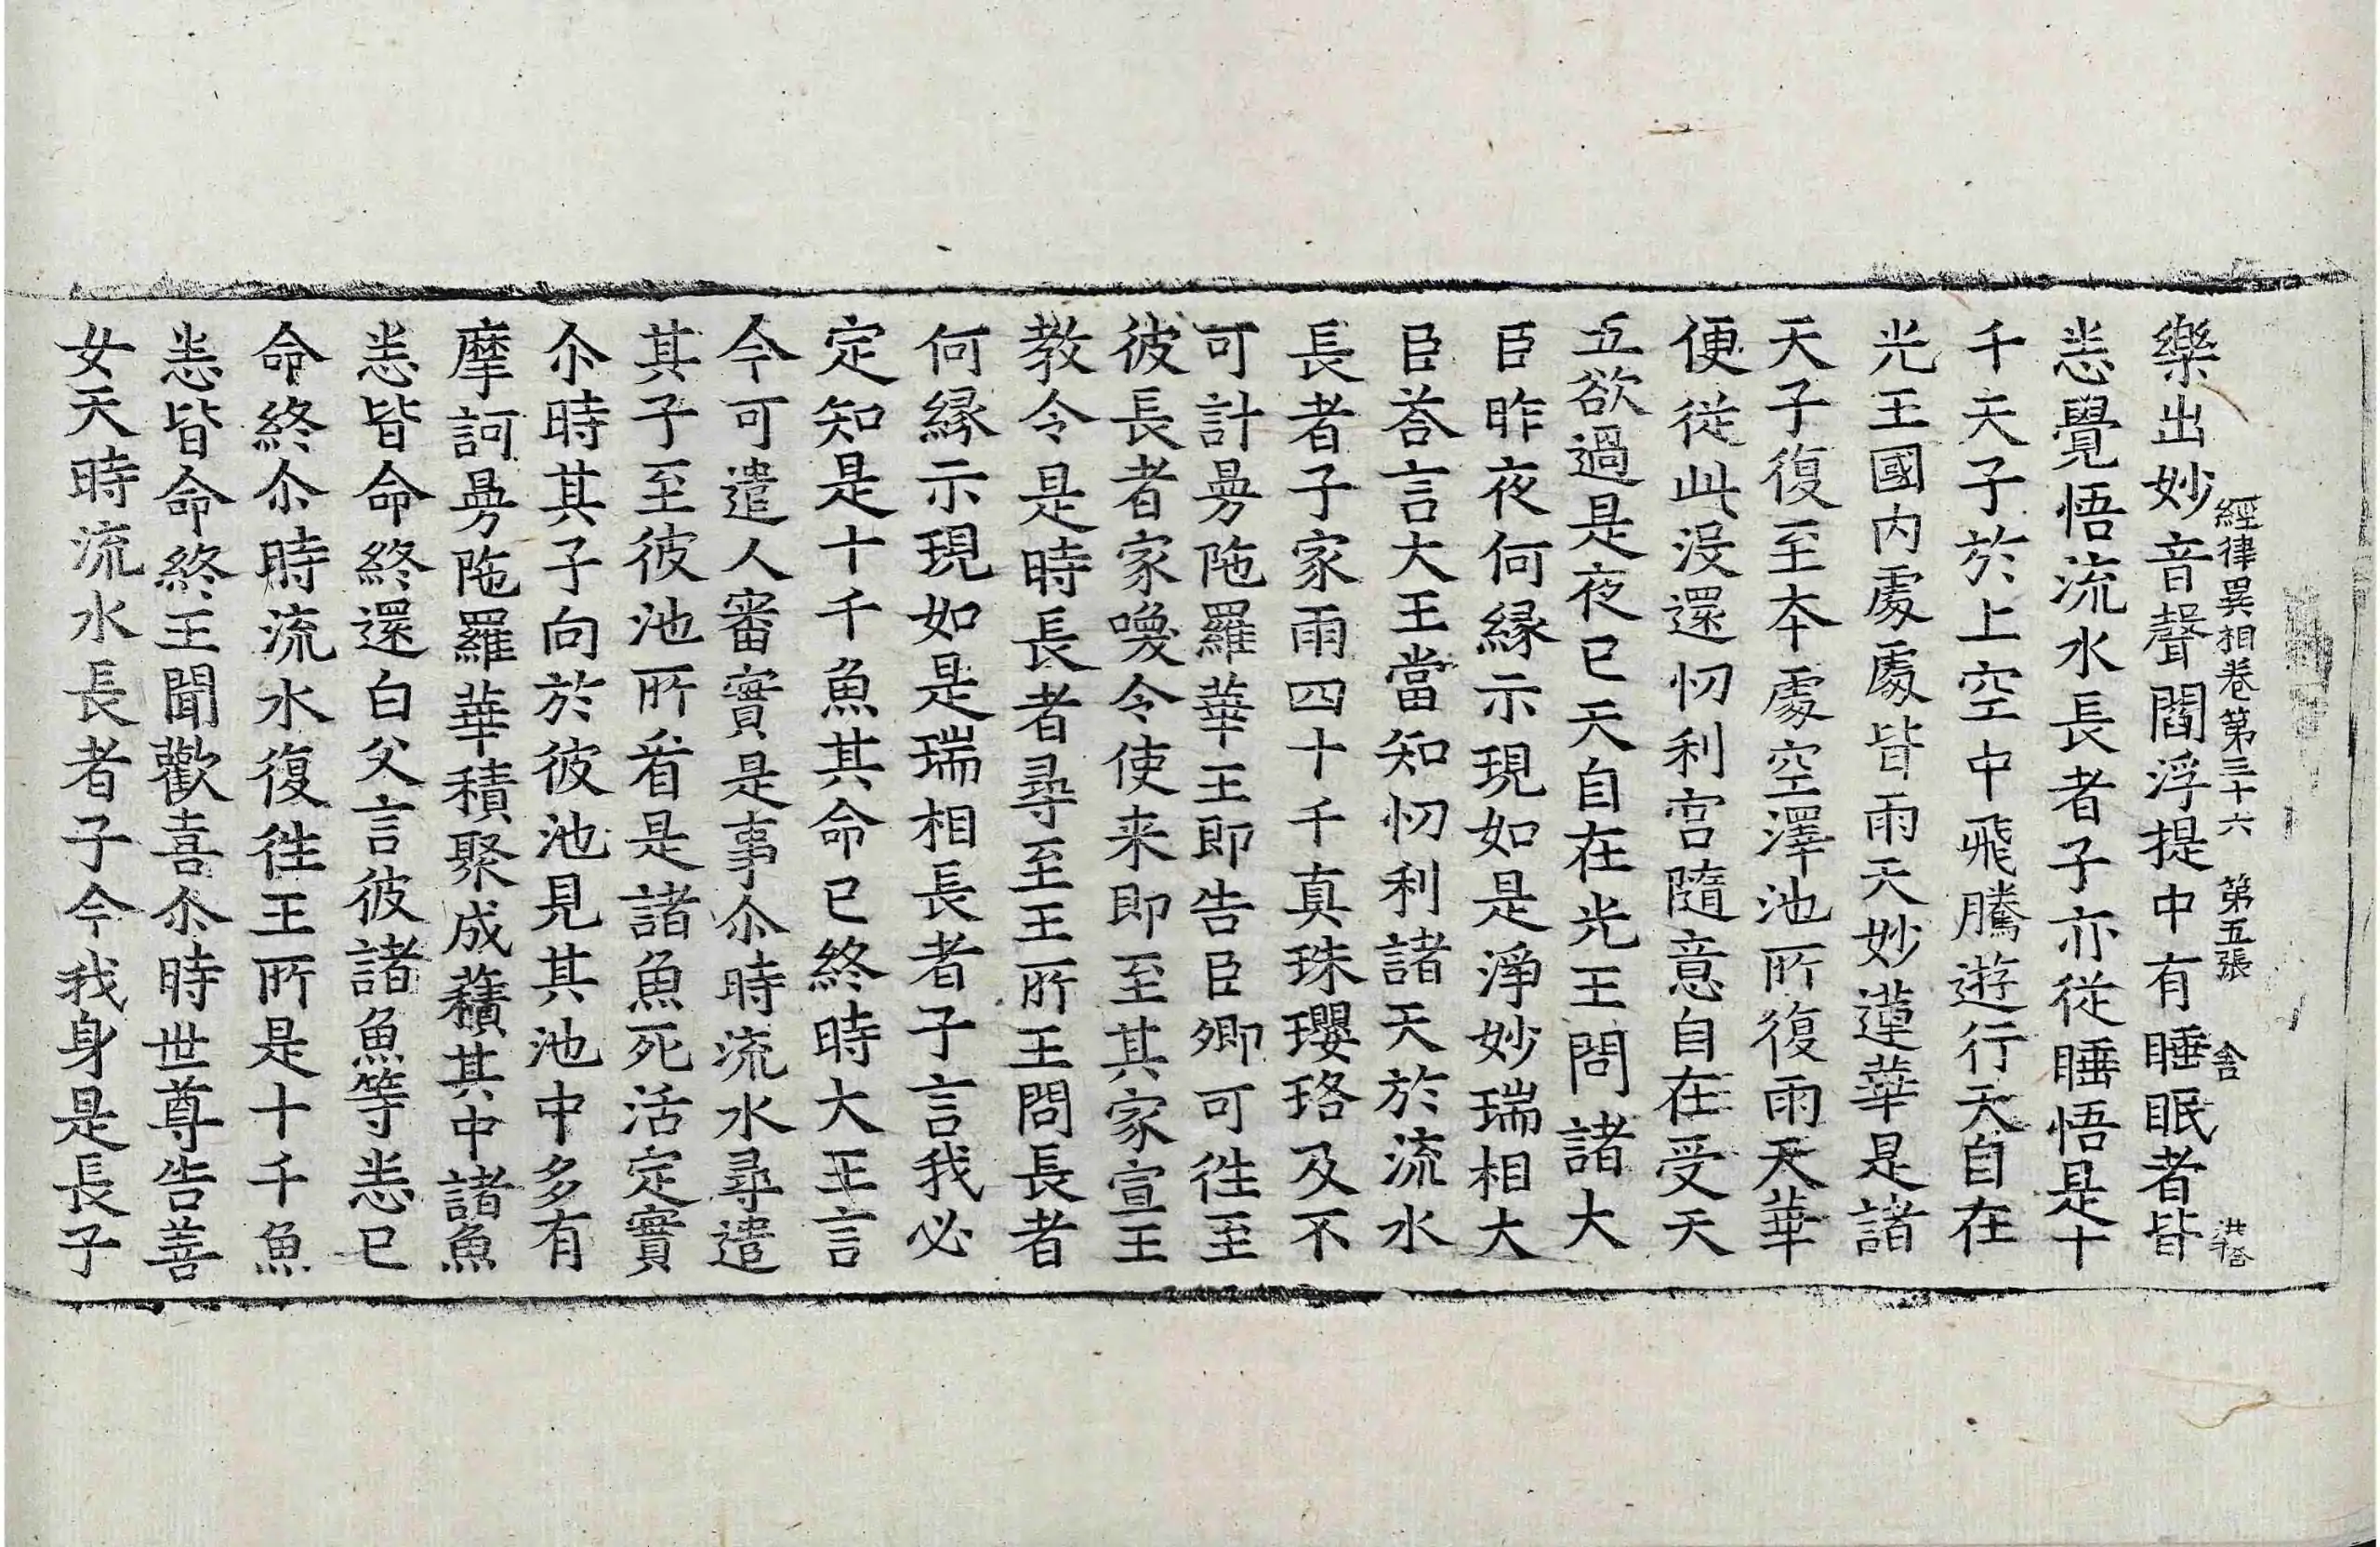 經律異相卷第三十六 第五張 舍
樂出妙音聲閻浮提中有睡眠者皆
恙覺悟流水長者子亦從睡悟是十
千天子於上空中飛騰遊行天自在
光王國内處處皆雨天妙蓮華是諸
天子復至本處空澤池所復雨天華
便從此沒還忉利宮隨意自在受天
五欲過是夜已天自在光王問諸大
臣昨夜何緣示現如是淨妙瑞相大
臣荅言大王當知忉利諸天於流水
長者子家雨四十千真珠瓔珞及不
可計曼陁羅華王即告臣卿可往至
彼長者家喚令使来即至其家宣王
教令是時長者尋至王所王問長者
何緣示現如是瑞相長者子言我必
定知是十千魚其命已終時大王言
今可遣人審實是事尒時流水尋遣
其子至彼池所看是諸魚死活定實
尒時其子向於彼池見其池中多有
摩訶曼陁羅華積聚成𧂐其中諸魚
恙皆命終還白父言彼諸魚等恙已
命終尒時流水復往王所是十千魚
恙皆命終王聞歡喜尒時世尊告善
女天時流水長者子今我身是長子